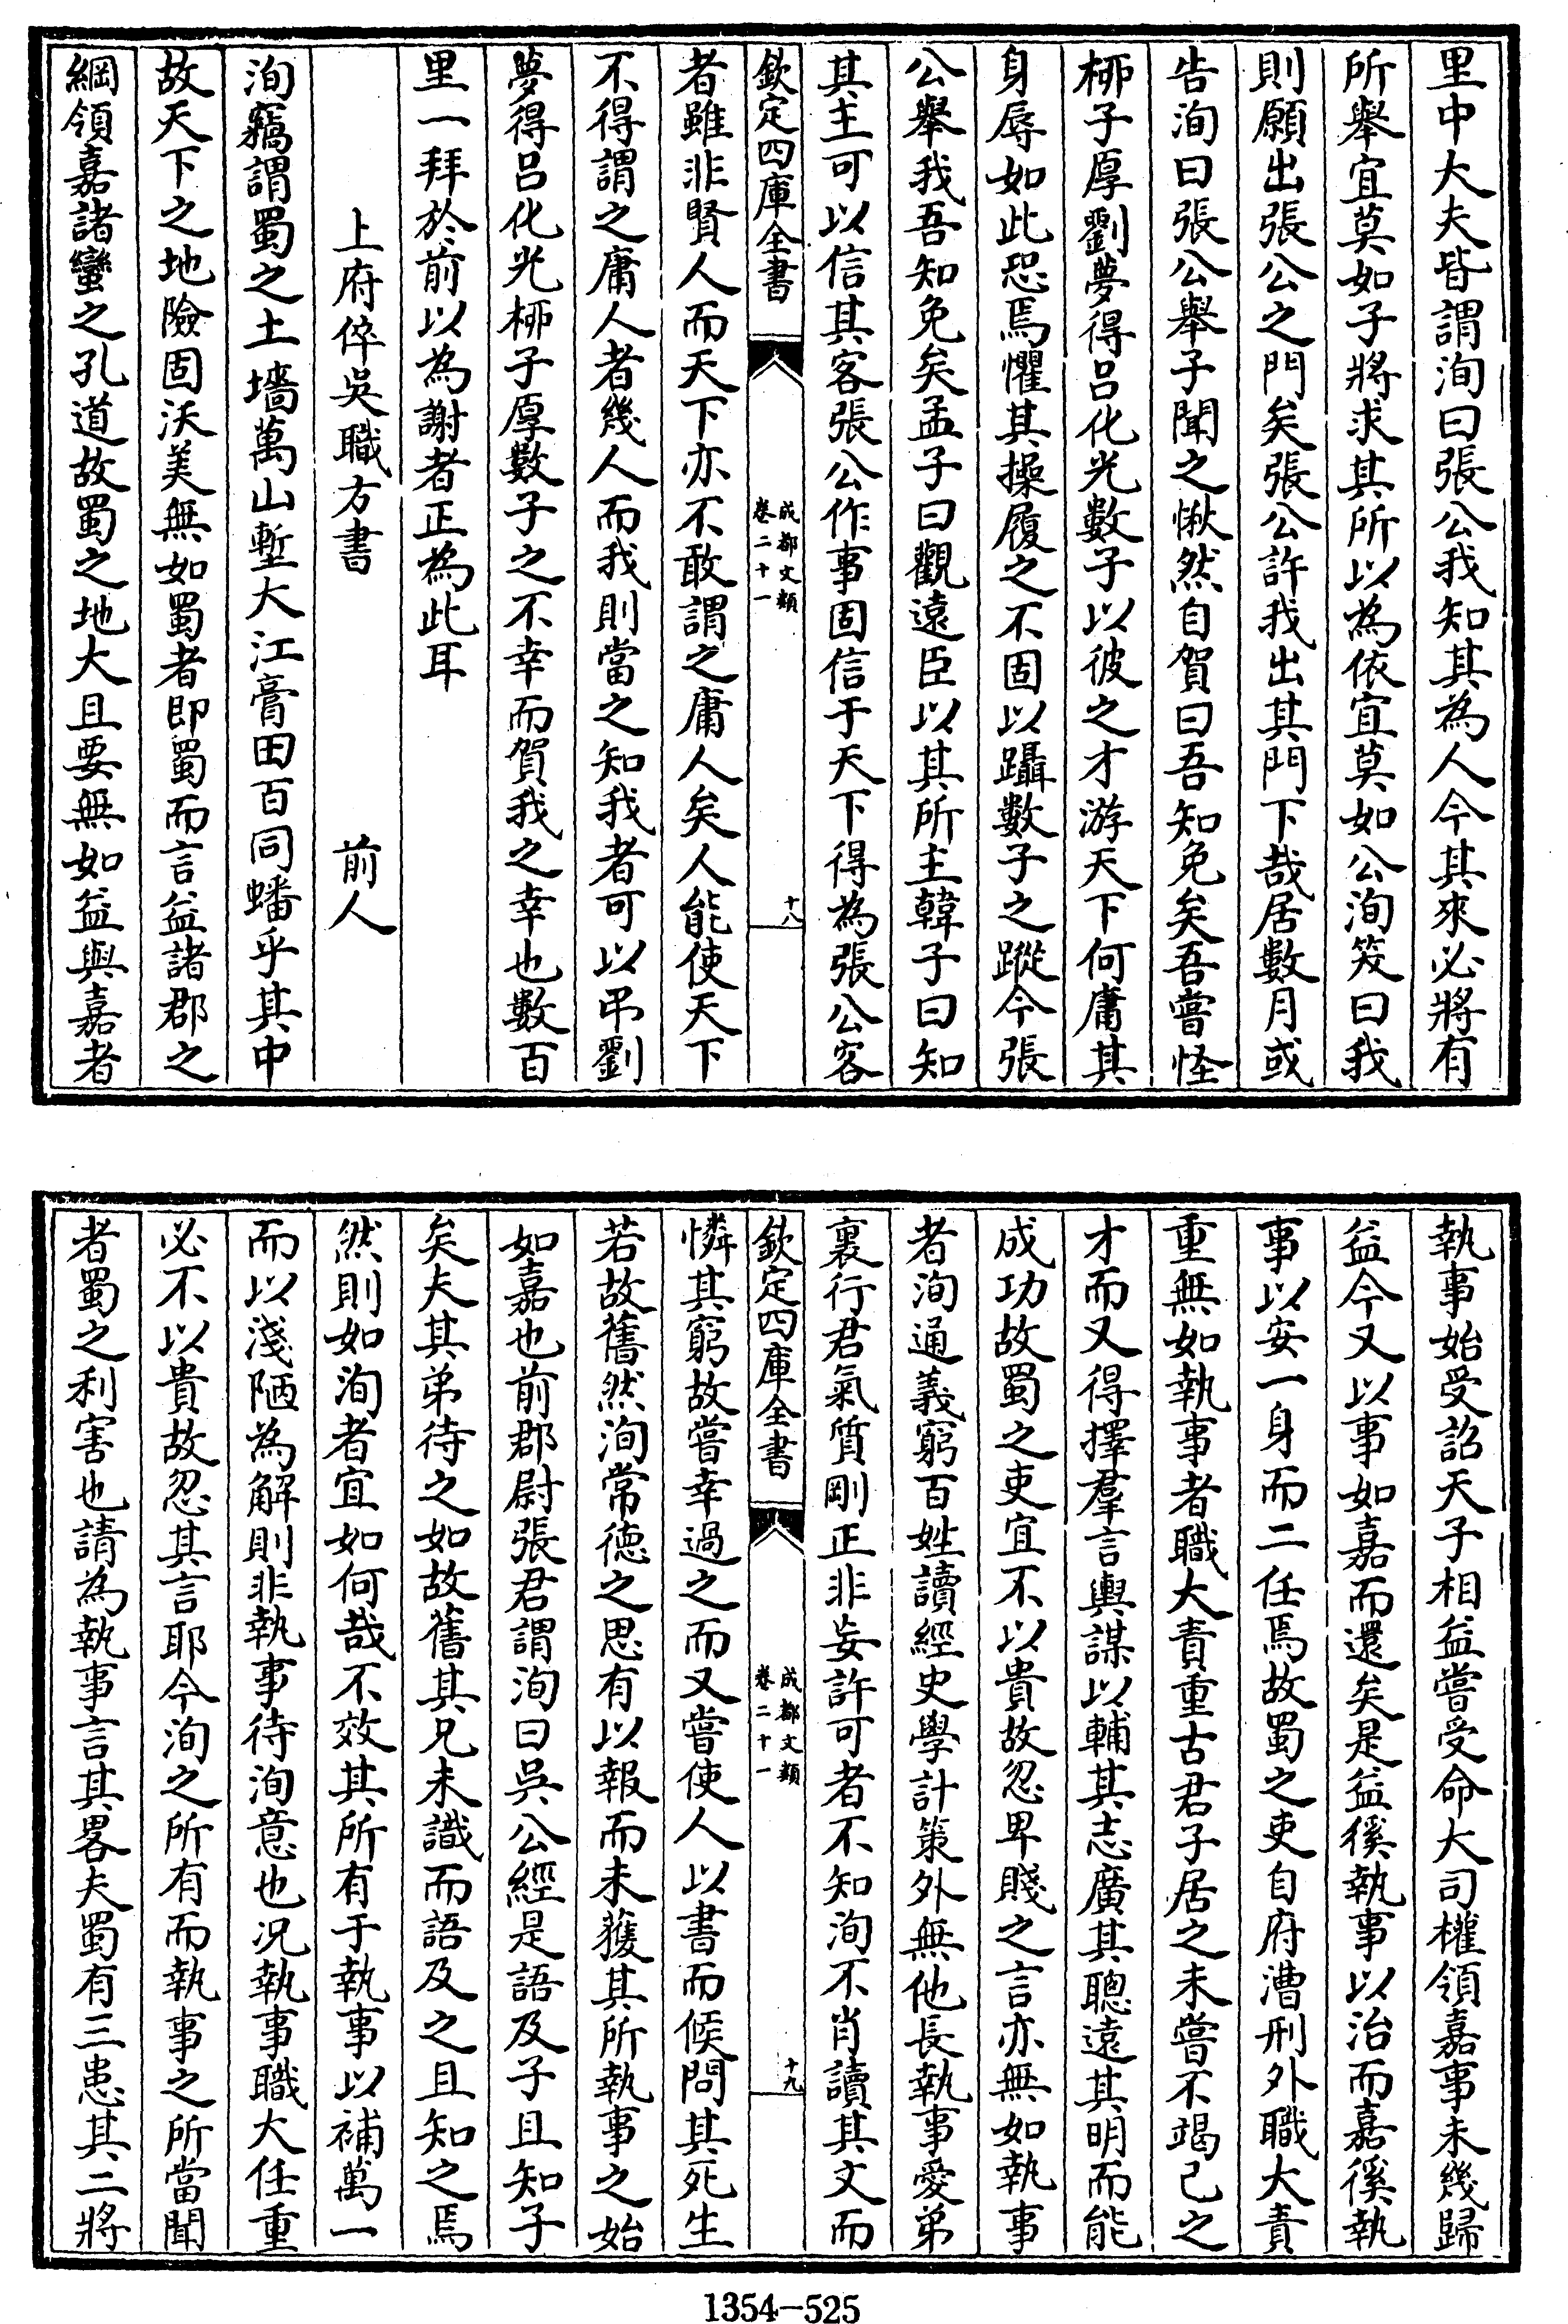 里中大夫皆謂洵曰張公我知其為人今其來必將有
所舉宜莫如子將求其所以為依宜莫如公洵笑曰我
則願出張公之門矣張公許我出其門下哉居數月或
告洵曰張公舉子聞之愀然自賀曰吾知免矣吾嘗怪
栁子厚劉夢得呂化光數子以彼之才游天下何庸其
身辱如此恐焉懼其操履之不固以躡數子之蹤今張
公舉我吾知免矣孟子曰觀遠臣以其所主韓子曰知
其主可以信其客張公作事固信于天下得為張公客
欽定四庫全書
成都文類
卷二十一
十八
者雖非賢人而天下亦不敢謂之庸人矣人能使天下
不得謂之庸人者幾人而我則當之知我者可以弔劉
夢得呂化光栁子厚數子之不幸而賀我之幸也數百
里一拜於前以為謝者正為此耳
上府倅吳職方書 前人
洵竊謂蜀之土墻萬山塹大江膏田百同蟠乎其中
故天下之地險固沃美無如蜀者即蜀而言益諸郡之
綱領嘉諸蠻之孔道故蜀之地大且要無如益與嘉者
執事始受詔天子相益嘗受命大司權領嘉事未幾歸
益今又以事如嘉而還矣是益徯執事以治而嘉徯執
事以安一身而二任焉故蜀之吏自府漕刑外職大責
重無如執事者職大責重古君子居之未嘗不竭己之
才而又得擇羣言輿謀以輔其志廣其聰遠其明而能
成功故蜀之吏宜不以貴故忽卑賤之言亦無如執事
者洵通義窮百姓讀經史學計策外無他長執事愛弟
裏行君氣質剛正非妄許可者不知洵不肖讀其文而
欽定四庫全書
成都文類
卷二十一
十九
憐其窮故嘗幸過之而又嘗使人以書而候問其死生
若故舊然洵常德之思有以報而未獲其所執事之始
如嘉也前郡尉張君謂洵曰吳公經是語及子且知子
矣夫其弟待之如故舊其兄未識而語及之且知之焉
然則如洵者宜如何哉不效其所有于執事以補萬一
而以淺陋為解則非執事待洵意也况執事職大任重
必不以貴故忽其言耶今洵之所有而執事之所當聞
者蜀之利害也請為執事言其畧夫蜀有三患其二將
1354-525